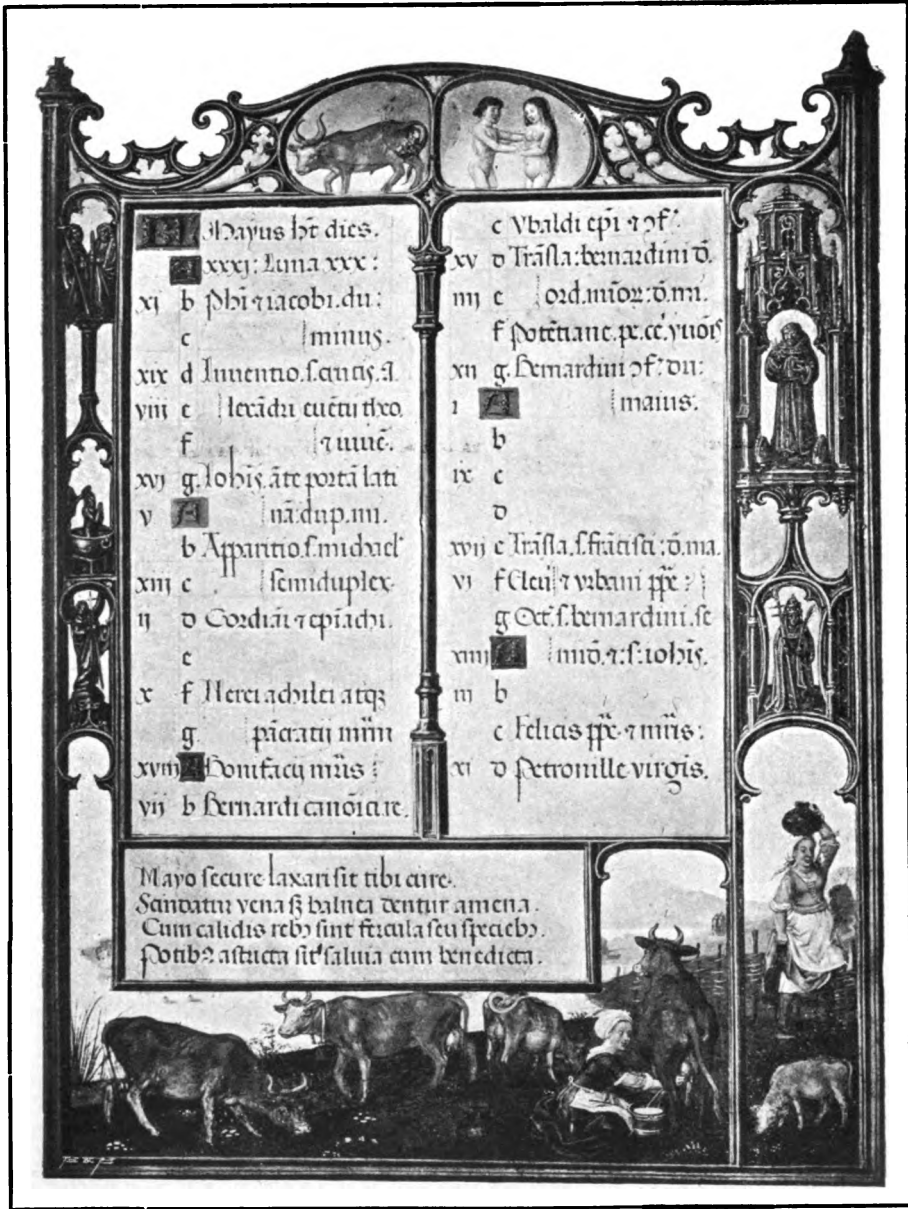 KL Mayus ht dies.
A xxxj: Luna xxx:
xj b Phi ⁊ iacobi. du:
c minus.
xix d Inuentio. s. crucis. A.
viij e lexādri euētii thxo
f ⁊ iuuē.
xvj g. Iohis. āte portā lati
v A nā: dup. mi.
b Apparitio. s. michael'
xiij c semiduplex.
ij d Gordiāi ⁊ epiachi.
e
x f Nerei achilei atqȝ
g. pācratij mr̄m
xviij A Bonifacij mr̄is:
vij b Bernardi canōici. re.
c Vbaldi epi ⁊ ɔf:
xv d Trāsla: bernardini d.
iiij e ord. mīor: d. mi.
f Potētiane. ⁊ yuōis
xij g. Bernardini ɔf: du:
i A maius.
b
ix c
d
xvij e Trāsla. s. frācisci: d. ma.
vi f Eleu ⁊ vrbani ppe:
g Oct. s. bernardini. se
xiiij A mid. ⁊: s: iohis.
iij b
c Felicis ppe ⁊ mr̄is:
xi d Petronille virgis.
Mayo secure laxari sit tibi cure.
Scindatur vena sȝ balnea dentur amena.
Cum calidis rebȝ sint fercula seu speciebȝ.
Potibȝ astricta sit saluia cum benedicta.